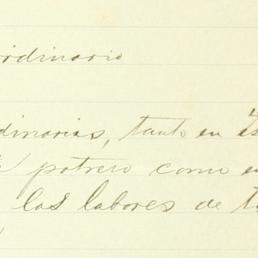 rdinario
dinarias, tanto en es
potrero como en
las labores de t